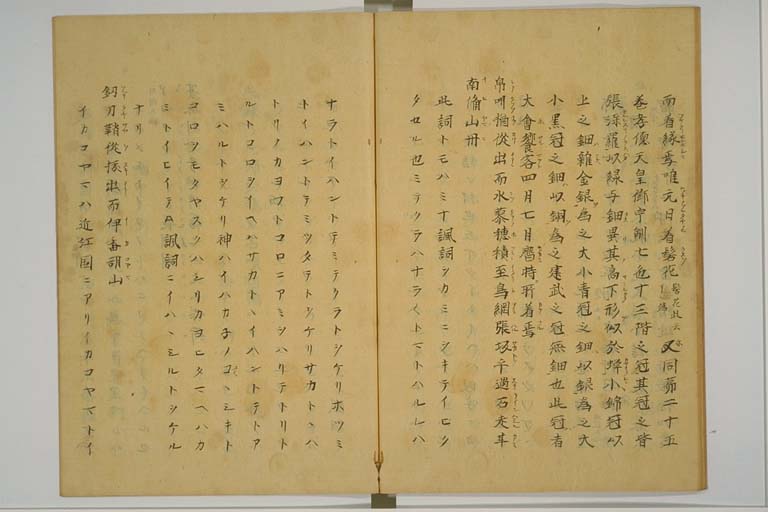 而着緑焉唯元日着髻花髻花此云 又同第二十五
巻孝徳天皇御宇制七色十三階之冠其冠之背
張漆羅以縁与鈿異其高下形似於蝉小錦冠以
上之鈿雑金銀為之大小青冠之鈿以銀為之大
小黒冠之鈿以銅為之建武之冠無鈿也此冠者
大會饗客四月七月齋時所着焉
従出而水蓼穂積至鳥網張坂手過石走
南備山丹
此詞トモハミナ諷詞シカミニシキテイヒツ
タセル也ミテクラハナラ トハルレハ
ナラトイハントテミテクラトシケリホツミ
トイハントテミツタテトシケリサカトヽハ
トリノカヨフトコロニアミシハリテトリト
ルトコロシイヘハサカトヽイハントテトア
ミハルトシケリ神ハイハカ子ノコヽミキト
ヨロシモタヤスクハシリカヨヒタマヘハカ
ミトイヒイテム諷詞ニイハヽシルトシケル
ナリ
釼刀鞘従拔出而伊香胡山
イカコヤマハ近江国ニアリイカコヤマトイ